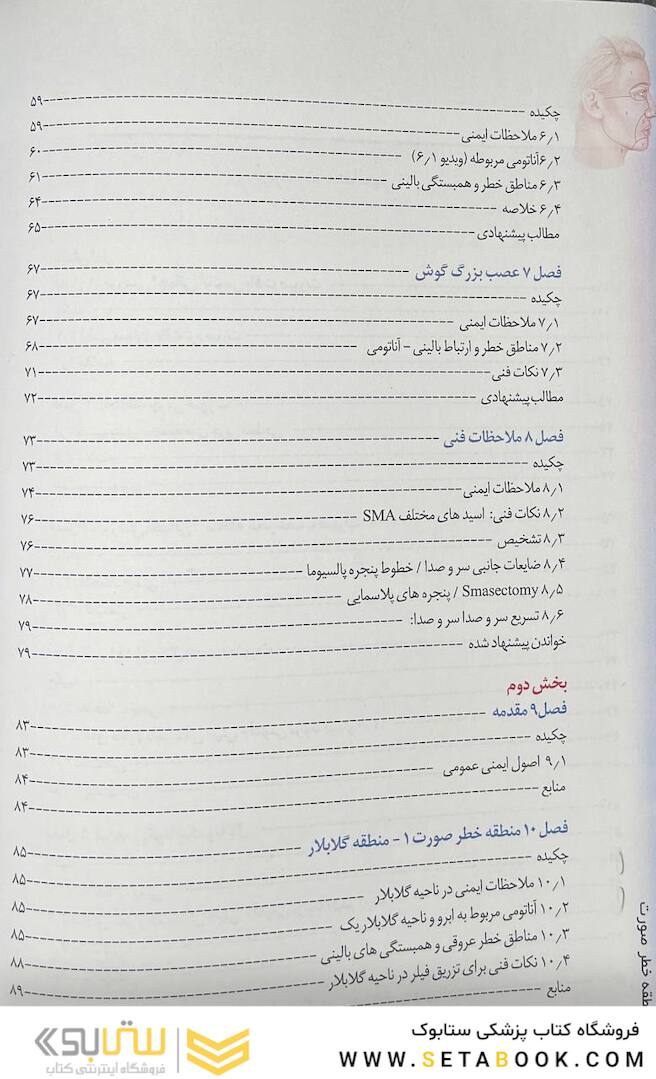 چکیده ۵۹
۶٫۱ ملاحظات ایمنی ۵۹
۶٫۲ آناتومی مربوطه (ویدیو ۶٫۱) ۶۰
۶٫۳ مناطق خطر و همبستگی بالینی ۶۱
۶٫۴ خلاصه ۶۴
مطالب پیشنهادی ۶۵
فصل ۷ عصب بزرگ گوش ۶۷
چکیده ۶۷
۷٫۱ ملاحظات ایمنی ۶۷
۷٫۲ مناطق خطر و ارتباط بالینی - آناتومی ۶۸
۷٫۳ نکات فنی ۷۱
مطالب پیشنهادی ۷۲
فصل ۸ ملاحظات فنی ۷۳
چکیده ۷۳
۸٫۱ ملاحظات ایمنی ۷۴
۸٫۲ نکات فنی: اسید های مختلف SMA ۷۶
۸٫۳ تشخیص ۷۶
۸٫۴ ضایعات جانبی سر و صدا / خطوط پنجره پالسیوما ۷۷
۸٫۵ Smasectomy / پنجره های پلاسمایی ۷۸
۸٫۶ تسریع سر و صدا سر و صدا: ۷۹
خواندن پیشنهاد شده ۷۹
بخش دوم
فصل ۹ مقدمه ۸۳
چکیده ۸۳
۹٫۱ اصول ایمنی عمومی ۸۴
منابع ۸۴
فصل ۱۰ منطقه خطر صورت ۱ - منطقه گلابلار ۸۵
چکیده ۸۵
۱۰٫۱ ملاحظات ایمنی در ناحیه گلابلار ۸۵
۱۰٫۲ آناتومی مربوط به ابرو و ناحیه گلابلار یک ۸۵
۱۰٫۳ مناطق خطر عروقی و همبستگی های بالینی ۸۸
۱۰٫۴ نکات فنی برای تزریق فیلر در ناحیه گلابلار ۸۹
منابع
خطر صورت
فروشگاه کتاب پزشکی ستابوک
WWW.SETABOOK.COM
ستابوک
فروشگاه اینترنتی کتاب